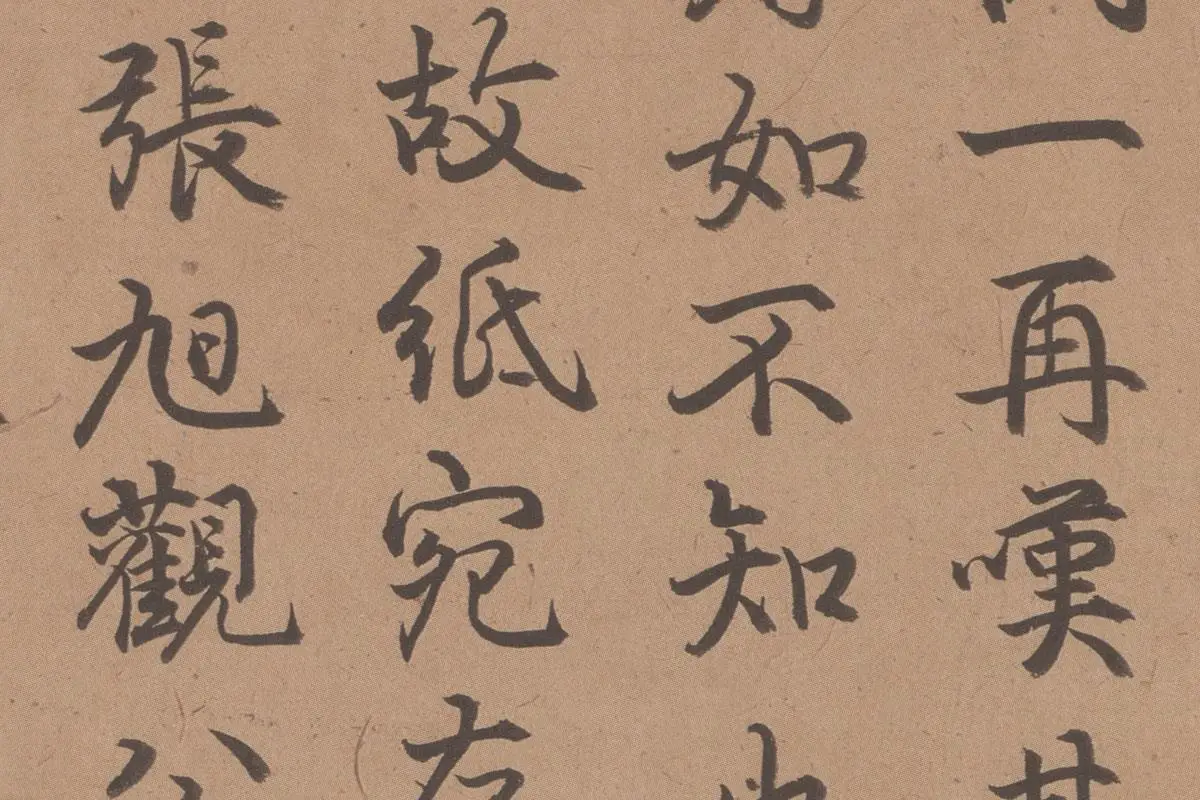 一再嘆
如不知
故紙宛
張旭觀公